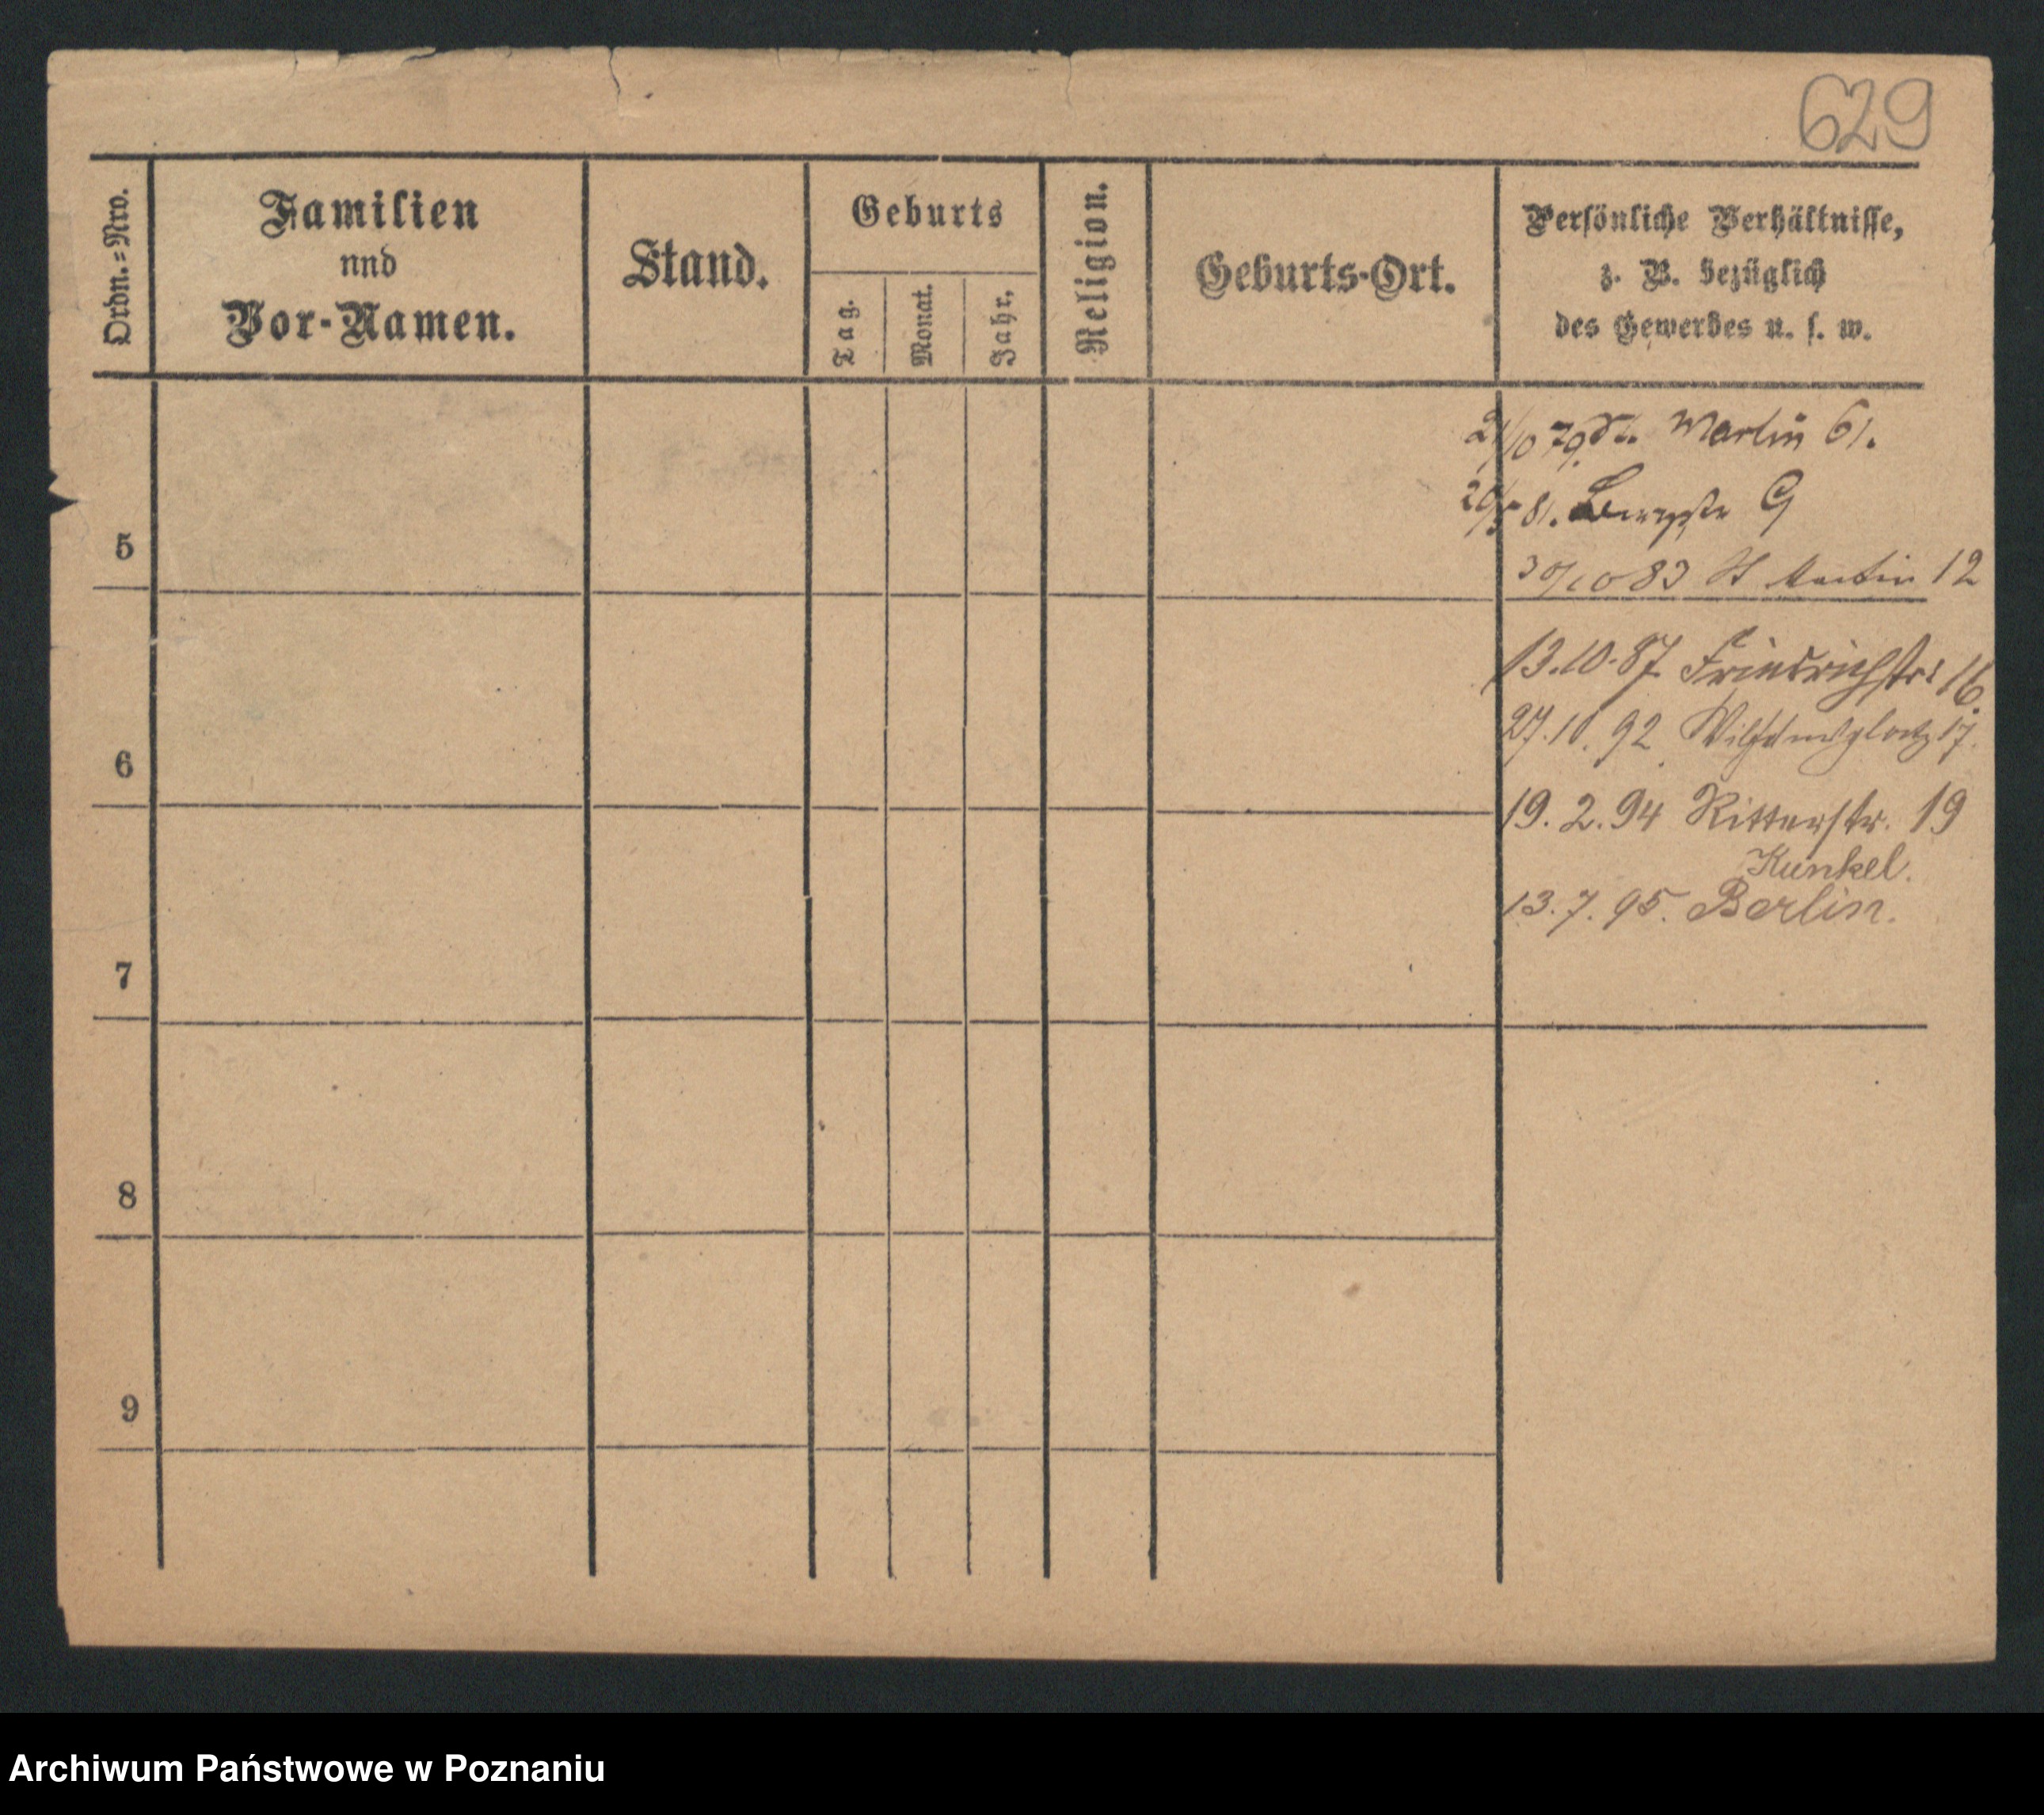 629
Ordn.=Nro.
Familien
nnd
Vor-Namen.
Stand.
Geburts
Tag.
Monat.
Jahr.
Religion.
Geburts-Ort.
Persönliche Verhältnisse,
z. B. bezüglich
des Gewerbes u. s. w.
21/10 79. St. Martin 61.
20/5 81. Bergstr 9
5
30/10 83 St Martin 12
13.10.87. Friedrichstr. 16.
27.10.92. Wilhelmsplatz 17.
6
19.2.94 Ritterstr. 19
Kunkel.
13.7.95. Berlin.
7
8
9
Archiwum Państwowe w Poznaniu